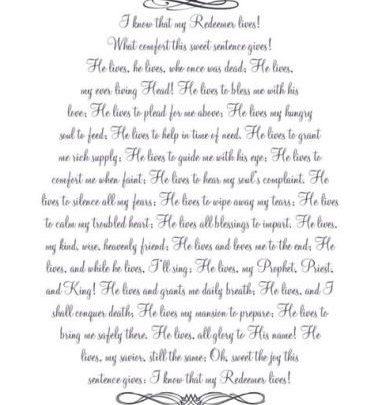 I know that my Redeemer lives!
What comfort this sweet sentence gives!
He lives, he lives, who once was dead; He lives,
my ever living Head! He lives to bless me with his
love; He lives to plead for me above; He lives my hungry
soul to feed; He lives to help in time of need. He lives to grant
me rich supply; He lives to guide me with his eye; He lives to
comfort me when faint; He lives to hear my soul's complaint. He
lives to silence all my fears; He lives to wipe away my tears; He lives
to calm my troubled heart; He lives all blessings to impart. He lives,
my kind, wise, heavenly friend; He lives and loves me to the end; He
lives, and while he lives, I'll sing; He lives, my Prophet, Priest,
and King! He lives and grants me daily breath; He lives, and I
shall conquer death; He lives my mansion to prepare; He lives to
bring me safely there. He lives, all glory to His name! He
lives, my savior, still the same; Oh, sweet the joy this
sentence gives: I know that my Redeemer lives!